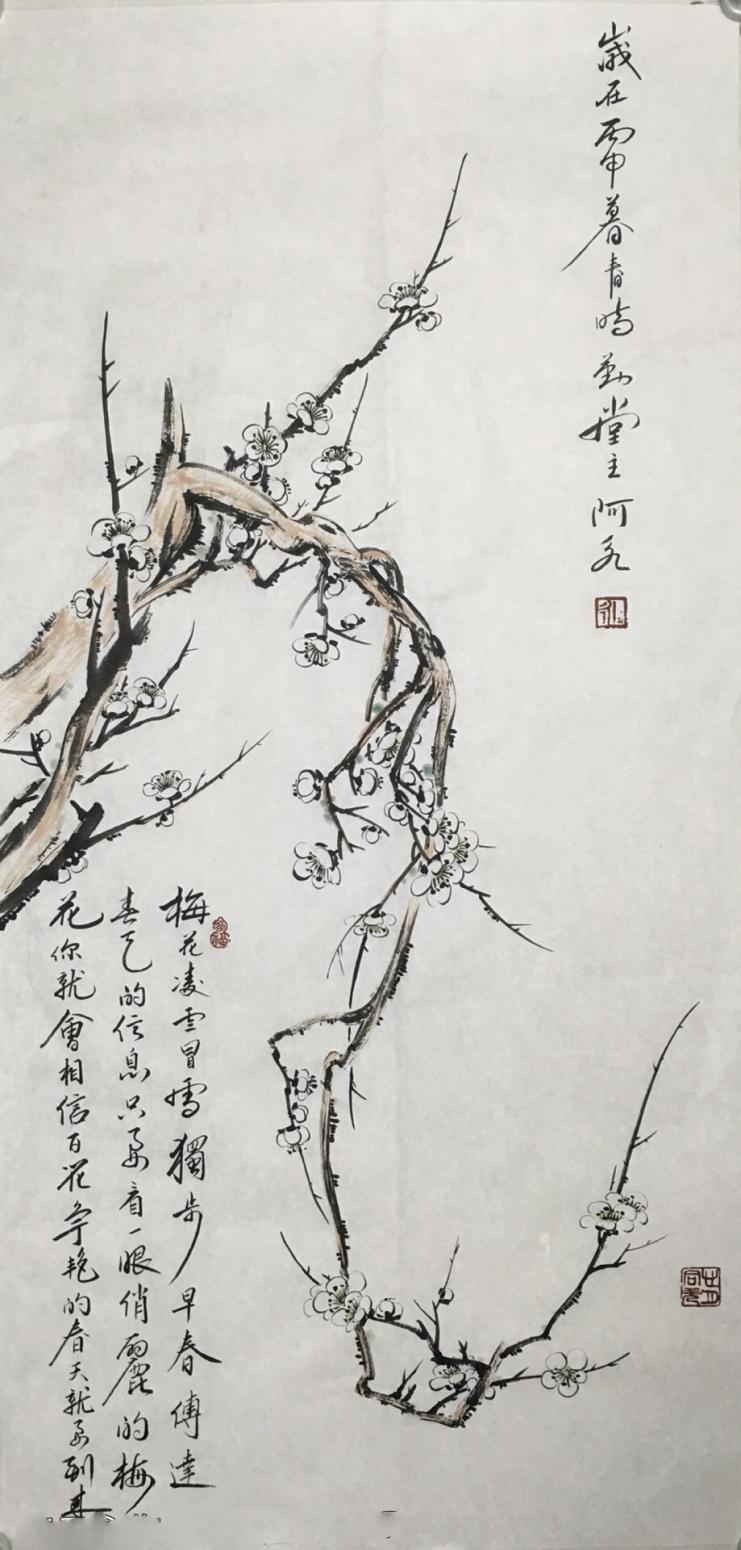 歲在丙申暮春時勤堂主阿
梅花凌雲冒雪獨步早春傳達
春天的信息只要看一眼俏麗的梅
花你就會相信百花爭艳的春天就要到来